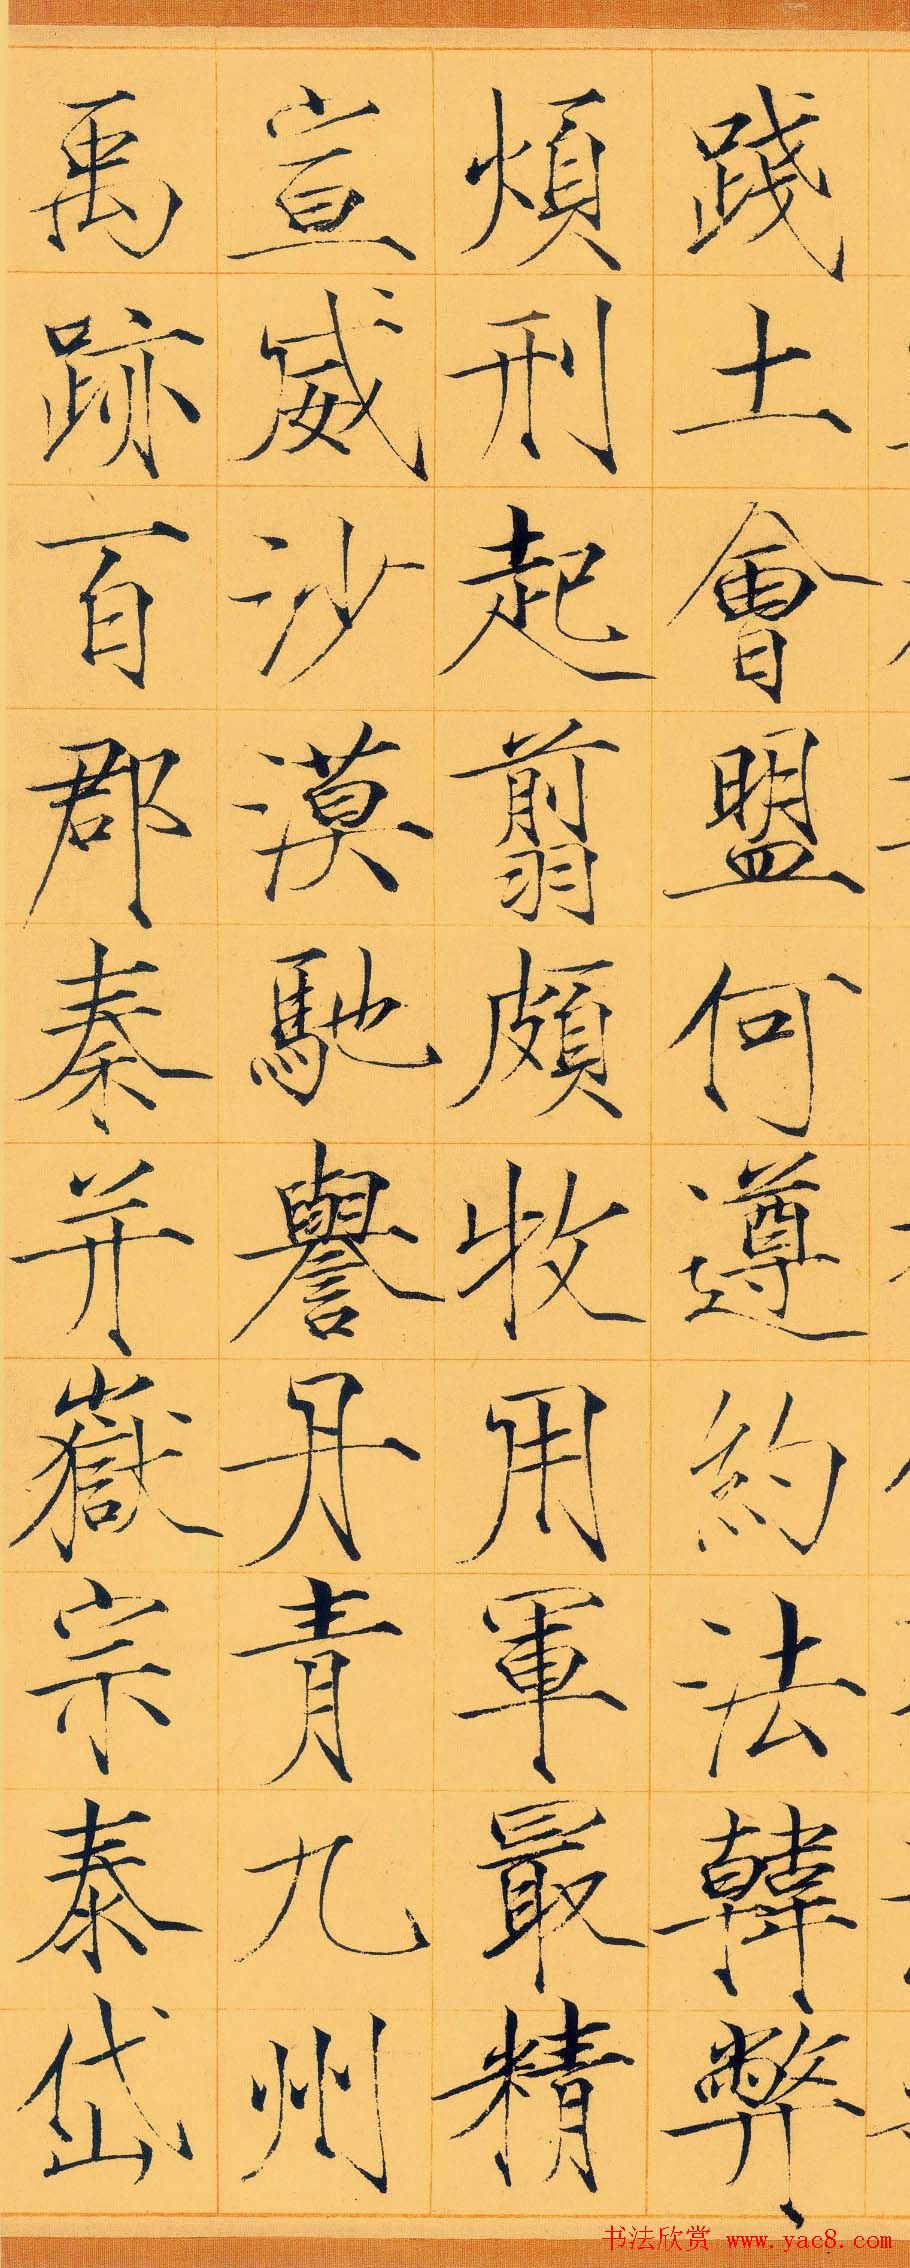 踐土會盟何遵約法韓弊
煩刑起翦頗牧用軍最精
宣威沙漠馳譽丹青九州
禹跡百郡秦并嶽宗泰岱
书法欣赏 www.yac8.com